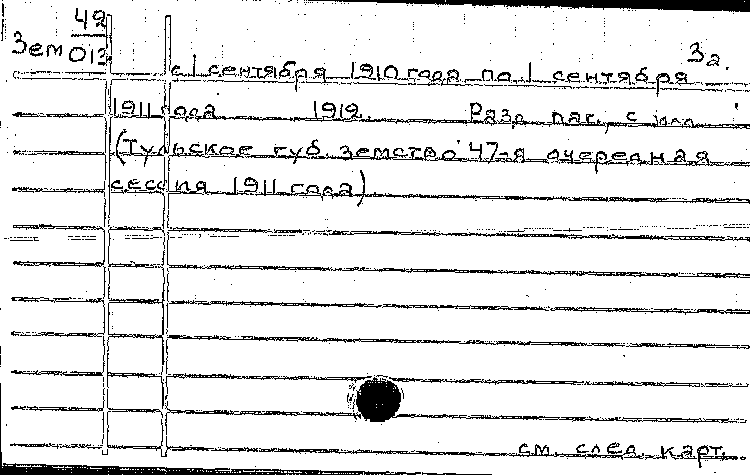 49
Зем 013
3а.
с 1 сентября 1910 года по 1 сентября
1911 года 1912. Разд. паг., с илл.
(Тульское губ. земство 47-я очередная
сессия 1911 года)
см. след. карт.